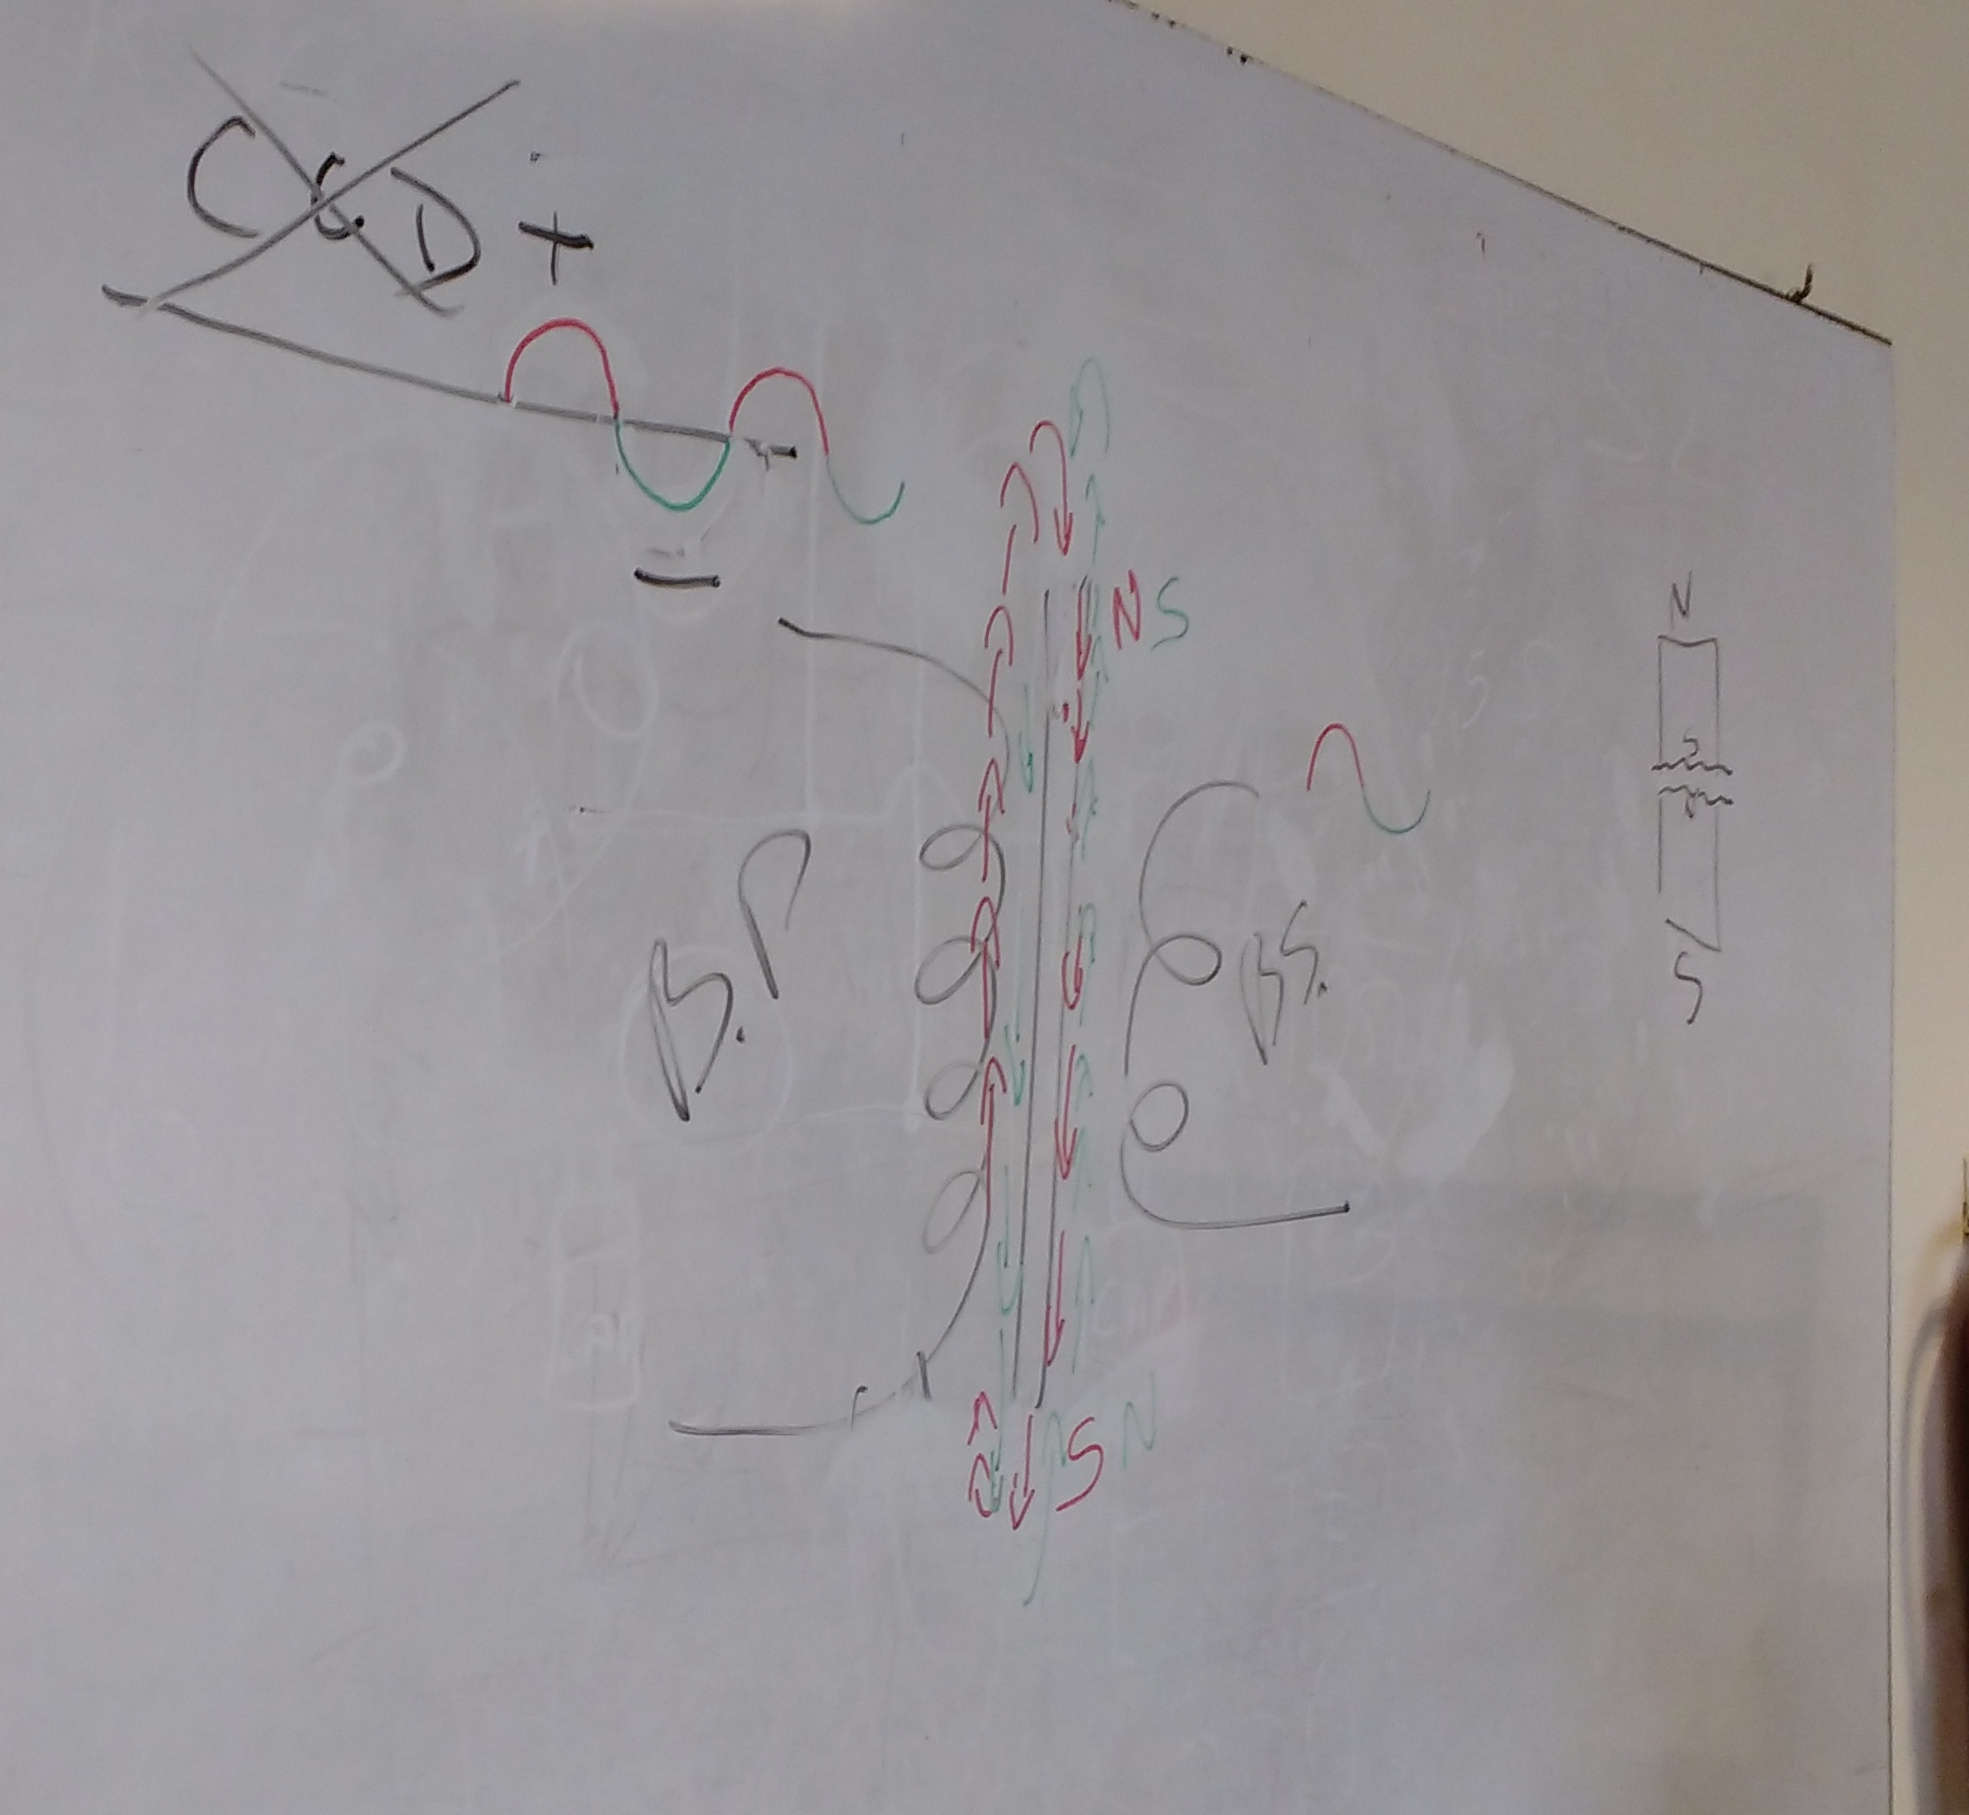 C.C.D +
-
N S
B.P
B.S.
S N
N
S
N
S